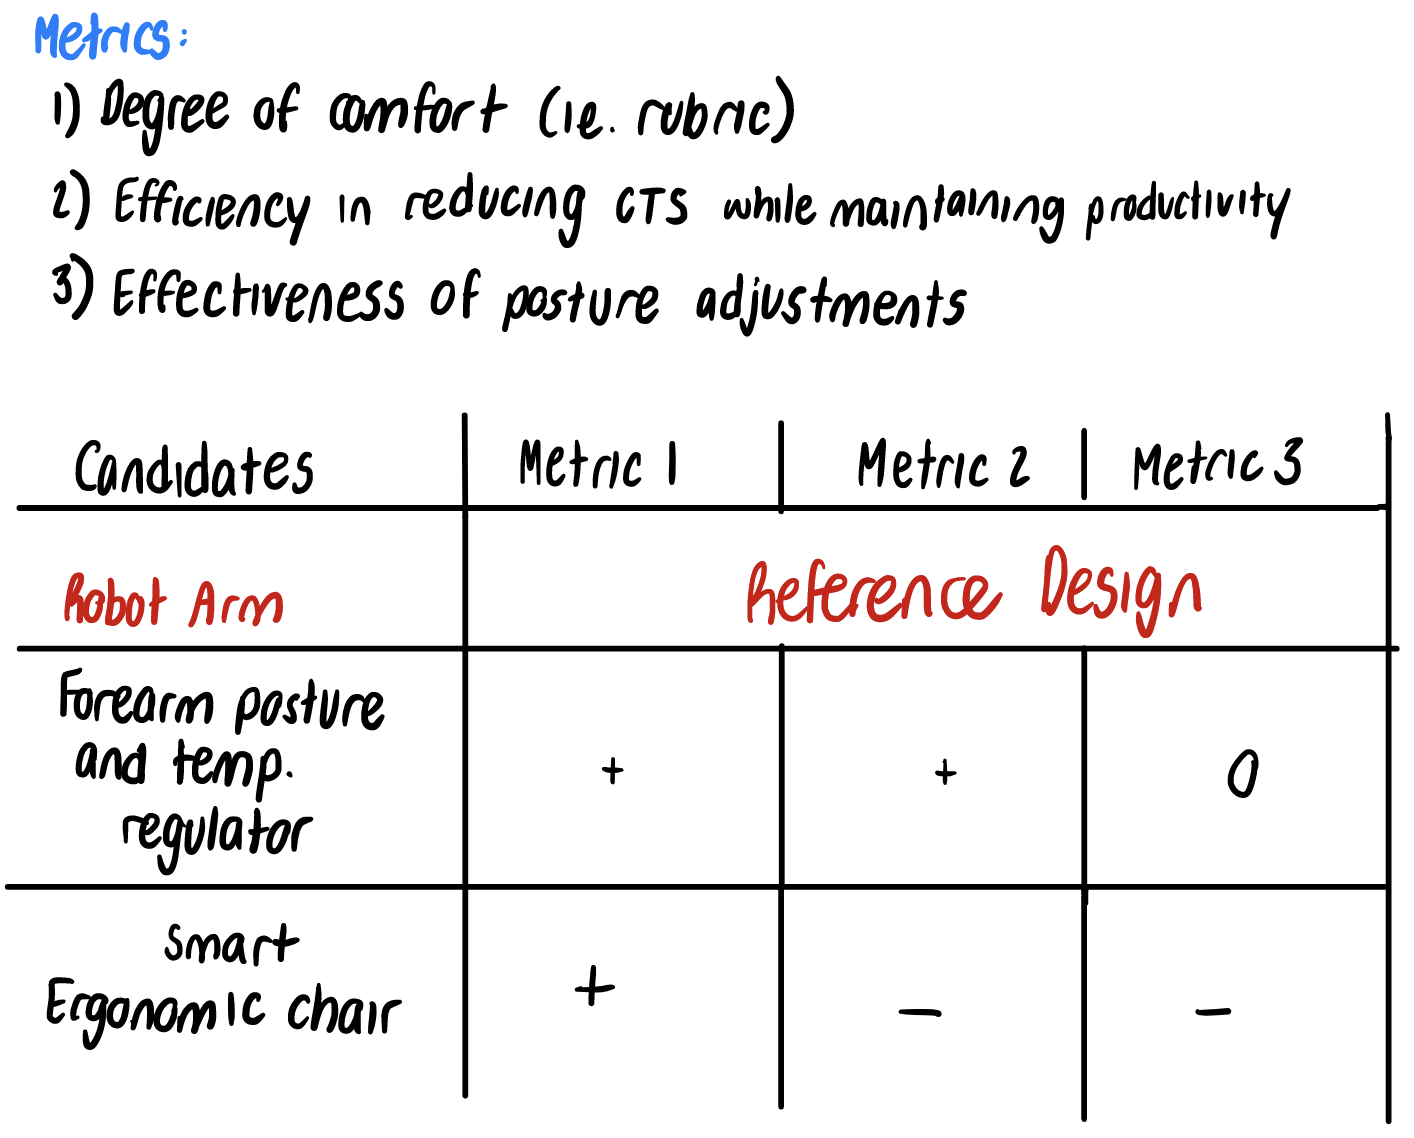 Metrics:
1) Degree of comfort (ie. rubric)
2) Efficiency in reducing CTS while maintaining productivity
3) Effectiveness of posture adjustments
Candidates Metric 1 Metric 2 Metric 3
Robot Arm Reference Design
Forearm posture
and temp.
regulator
+ + 0
Smart
Ergonomic chair
+ - -